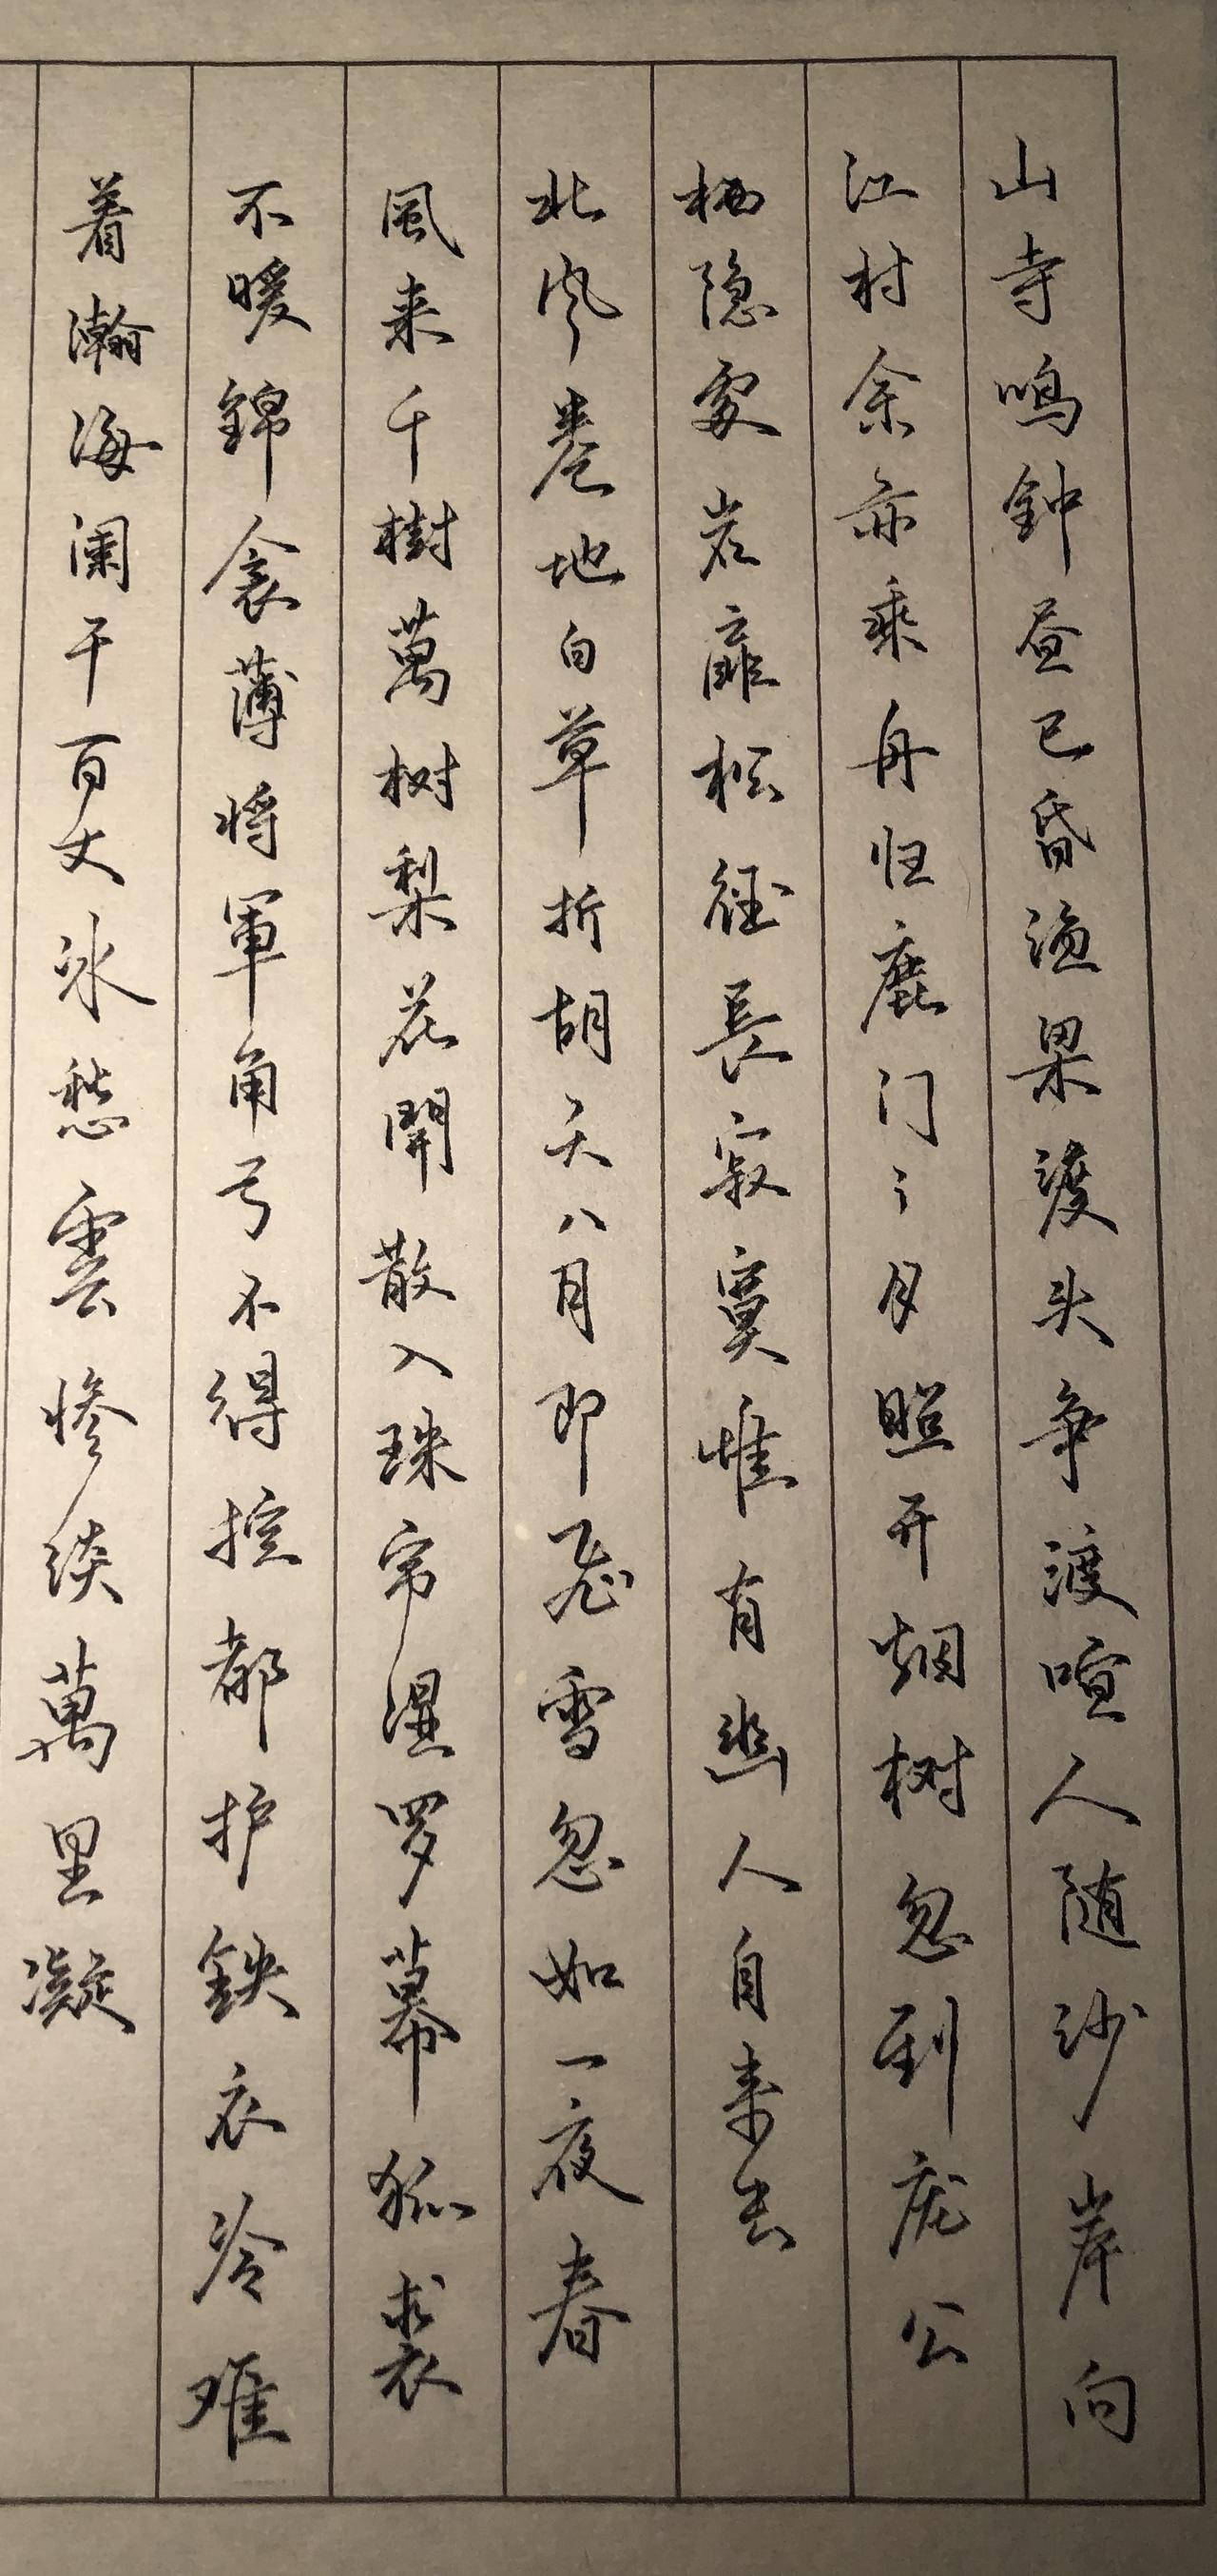 山寺鸣钟昼已昏渔果渡头争渡喧人随沙岸向
江村余亦乘舟归鹿门〻月照开烟树忽到庞公
栖隐处岩扉松径長寂寞惟有幽人自来去
北风卷地白草折胡天八月即飛雪忽如一夜春
風来千樹萬树梨花開散入珠帘濕罗幕狐裘
不暖錦衾薄将軍角弓不得控都护鉄衣冷难
着瀚海阑干百丈冰愁雲惨淡萬里凝